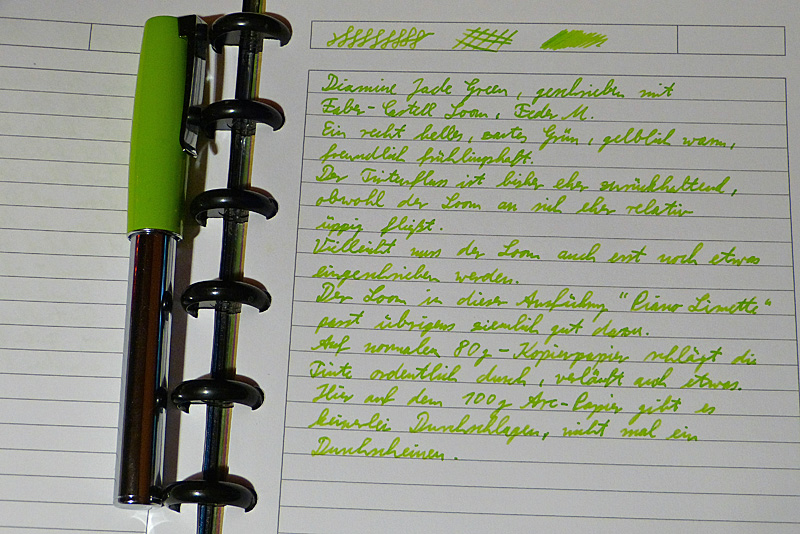 Diamine Jade Green, geschrieben mit
Faber-Castell Loom, Feder M.
Ein recht helles, zartes Grün, gelblich warm,
freundlich frühlingshaft.
Der Tintenfluss ist bisher eher zurückhaltend,
obwohl der Loom an sich eher relativ
üppig fließt.
Vielleicht muss der Loom auch erst noch etwas
eingeschrieben werden.
Der Loom in dieser Ausführung "Piano Limette"
passt übrigens ziemlich gut dazu.
Auf normalen 80g-Kopierpapier schlägt die
Tinte ordentlich durch, verläuft auch etwas.
Hier auf dem 100g Arc-Papier gibt es
keinerlei Durchschlagen, nicht mal ein
Durchscheinen.